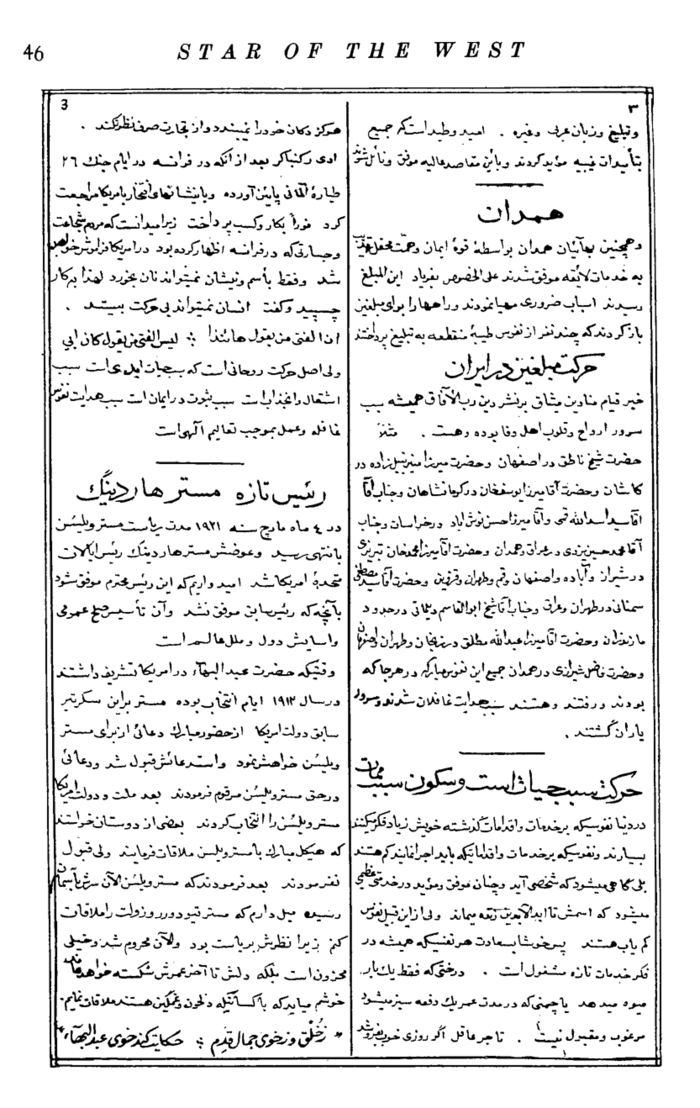 46
STAR OF THE WEST
۳
و تبلیغ و زبان عربی و غیره . امید وطید است که جمیع
بتأییدات غیبیه مؤید گردند و باین مقاصد عالیه موفق و نائل شوند
همدان
و همچنین بهائیان همدان بواسطهٔ قوهٔ ایمان و همّت محفل
به خدمات لائقه موفق شدند علی الخصوص بفریاد این المبلغ
رسیدند اسباب ضروری مهیا نمودند و راهها را برای مبلغین
باز کردند که چند نفر از نفوس طیبهٔ منقطعه به تبلیغ پرداختند
حرکت مبلغین در ایران
خبر قیام منادین میثاق بر نشر دین رب الآفاق همیشه سبب
سرور ارواح و قلوب اهل وفا بوده و هست .
حضرت شیخ ناطق در اصفهان و حضرت میرزا منیر نبیل زاده در
کاشان و حضرت آقا میرزا یوسفخان در کرمانشاهان و جناب آقا
آقا سید اسدالله قمی و آقا میرزا حسن نوش آباد در خراسان و جناب
آقا محمد حسین یزدی در عراق و همدان و حضرت آقا میرزا محمد خان تبریزی
در شیراز و آباده و اصفهان و قم و طهران و قزوین و حضرت آقا سید مصطفی
سمنانی در طهران و عراق و جناب آقا شیخ ابوالقاسم در حدود
مازندران و حضرت آقا میرزا عبدالله مطلق در زنجان و طهران و اصفهان
و حضرت فاضل شیرازی در همدان جمیع این نفوس مبارکه در هر جا که
بودند و رفتند و هستند سبب هدایت غافلان شدند و سرور
یاران گشتند .
حرکت سبب حیات است و سکون سبب ممات
در دنیا نفوسیکه بر خدمات و اقدامات گذشته خویش زیاد فکر میکنند
بسیارند و نفوسیکه بر خدمات و اقداماتیکه باید اجرا نمایند کم هستند
بلی گاهی میشود که شخصی آید و چنان موفق و مؤید در خدمتی عظیمی
میشود که اسمش تا ابد الآبدین زنده میماند ولی از این قبیل نفوس
کم یاب هستند پس خوشا بسعادت هر نفسیکه همیشه در
فکر خدمات تازه مشغول است . درختی که فقط یک بار
میوه میدهد یا چمنی که در مدت عمر یک دفعه سبز میشود
مرغوب و مقبول نیست . تاجر عاقل اگر روزی خوب بفروشد
3
هرگز دکان خود را نمیبندد و از تجارت صرف نظر نکند .
ادی رکنباکر بعد از آنکه در فرانسه در ایام جنگ ۲۶
طیارهٔ آلمانی پایین آورده و با نشانهای افتخار بامریکا مراجعت
کرد فوراً بکار و کسب پرداخت زیرا میدانست که مردم شجاعت
و جسارتی که در فرانسه اظهار کرده بود در امریکا فراموش خواهد
شد و فقط باسم و نشان نمیتواند نان بخورد لهذا بر کار
چسپید و گفت انسان نمیتواند بی حرکت بیستد .
ان الفتی من یقول ها انذا ⁘ لیس الفتی من یقول کان ابی
ولی اصل حرکت روحانی است که سبب حیات ابدی است سبب
اشتعال و انجذاب است سبب ثبوت در ایمان است سبب هدایت نفوس
غافله و عمل بموجب تعالیم الهی است
رئیس تازه مستر هاردینگ
در ٤ ماه مارچ سنه ۱۹۲۱ مدت ریاست مستر ویلسُن
بانتهی رسید و عوضش مستر هاردینگ رئیس ایالات
متحدهٔ امریکا شد امیدواریم که این رئیس محترم موفق شود
بآنچه که رئیس سابق موفق نشد و آن تأسیس صلح عمومی
و آسایش دول و ملل عالم است
وقتیکه حضرت عبدالبهآء در امریکا تشریف داشتند
در سال ۱۹۱۲ ایام انتخاب بوده مستر براین سکرتیر
سابق دولت امریکا از حضور مبارک دعائی از برای مستر
ویلسُن خواهش نمود و استدعائش قبول شد و دعائی
در حق مستر ویلسُن مرقوم فرمودند بعد ملت و دولت امریکا
مستر ویلسُن را انتخاب کردند بعضی از دوستان خواستند
که هیکل مبارک با مستر ویلسن ملاقات فرمایند ولی قبول
نفرمودند بعد فرمودند که مستر ویلسُن الآن سرش بآسمان
رسیده میل دارم که مستر تیودور روزولت را ملاقات
کنم زیرا نظرش بریاست بود و الآن محروم شد و خیلی
محزون است بلکه دلش تا آخر عمرش شکسته خواهد ماند
خوشم میآید که با کسانیکه دلخون و غمگین هستند ملاقات نمایم .
* ز خُلق و ز خوی جمال قِدَم ⁘ حکایت کند خوی عبدالبهآء *